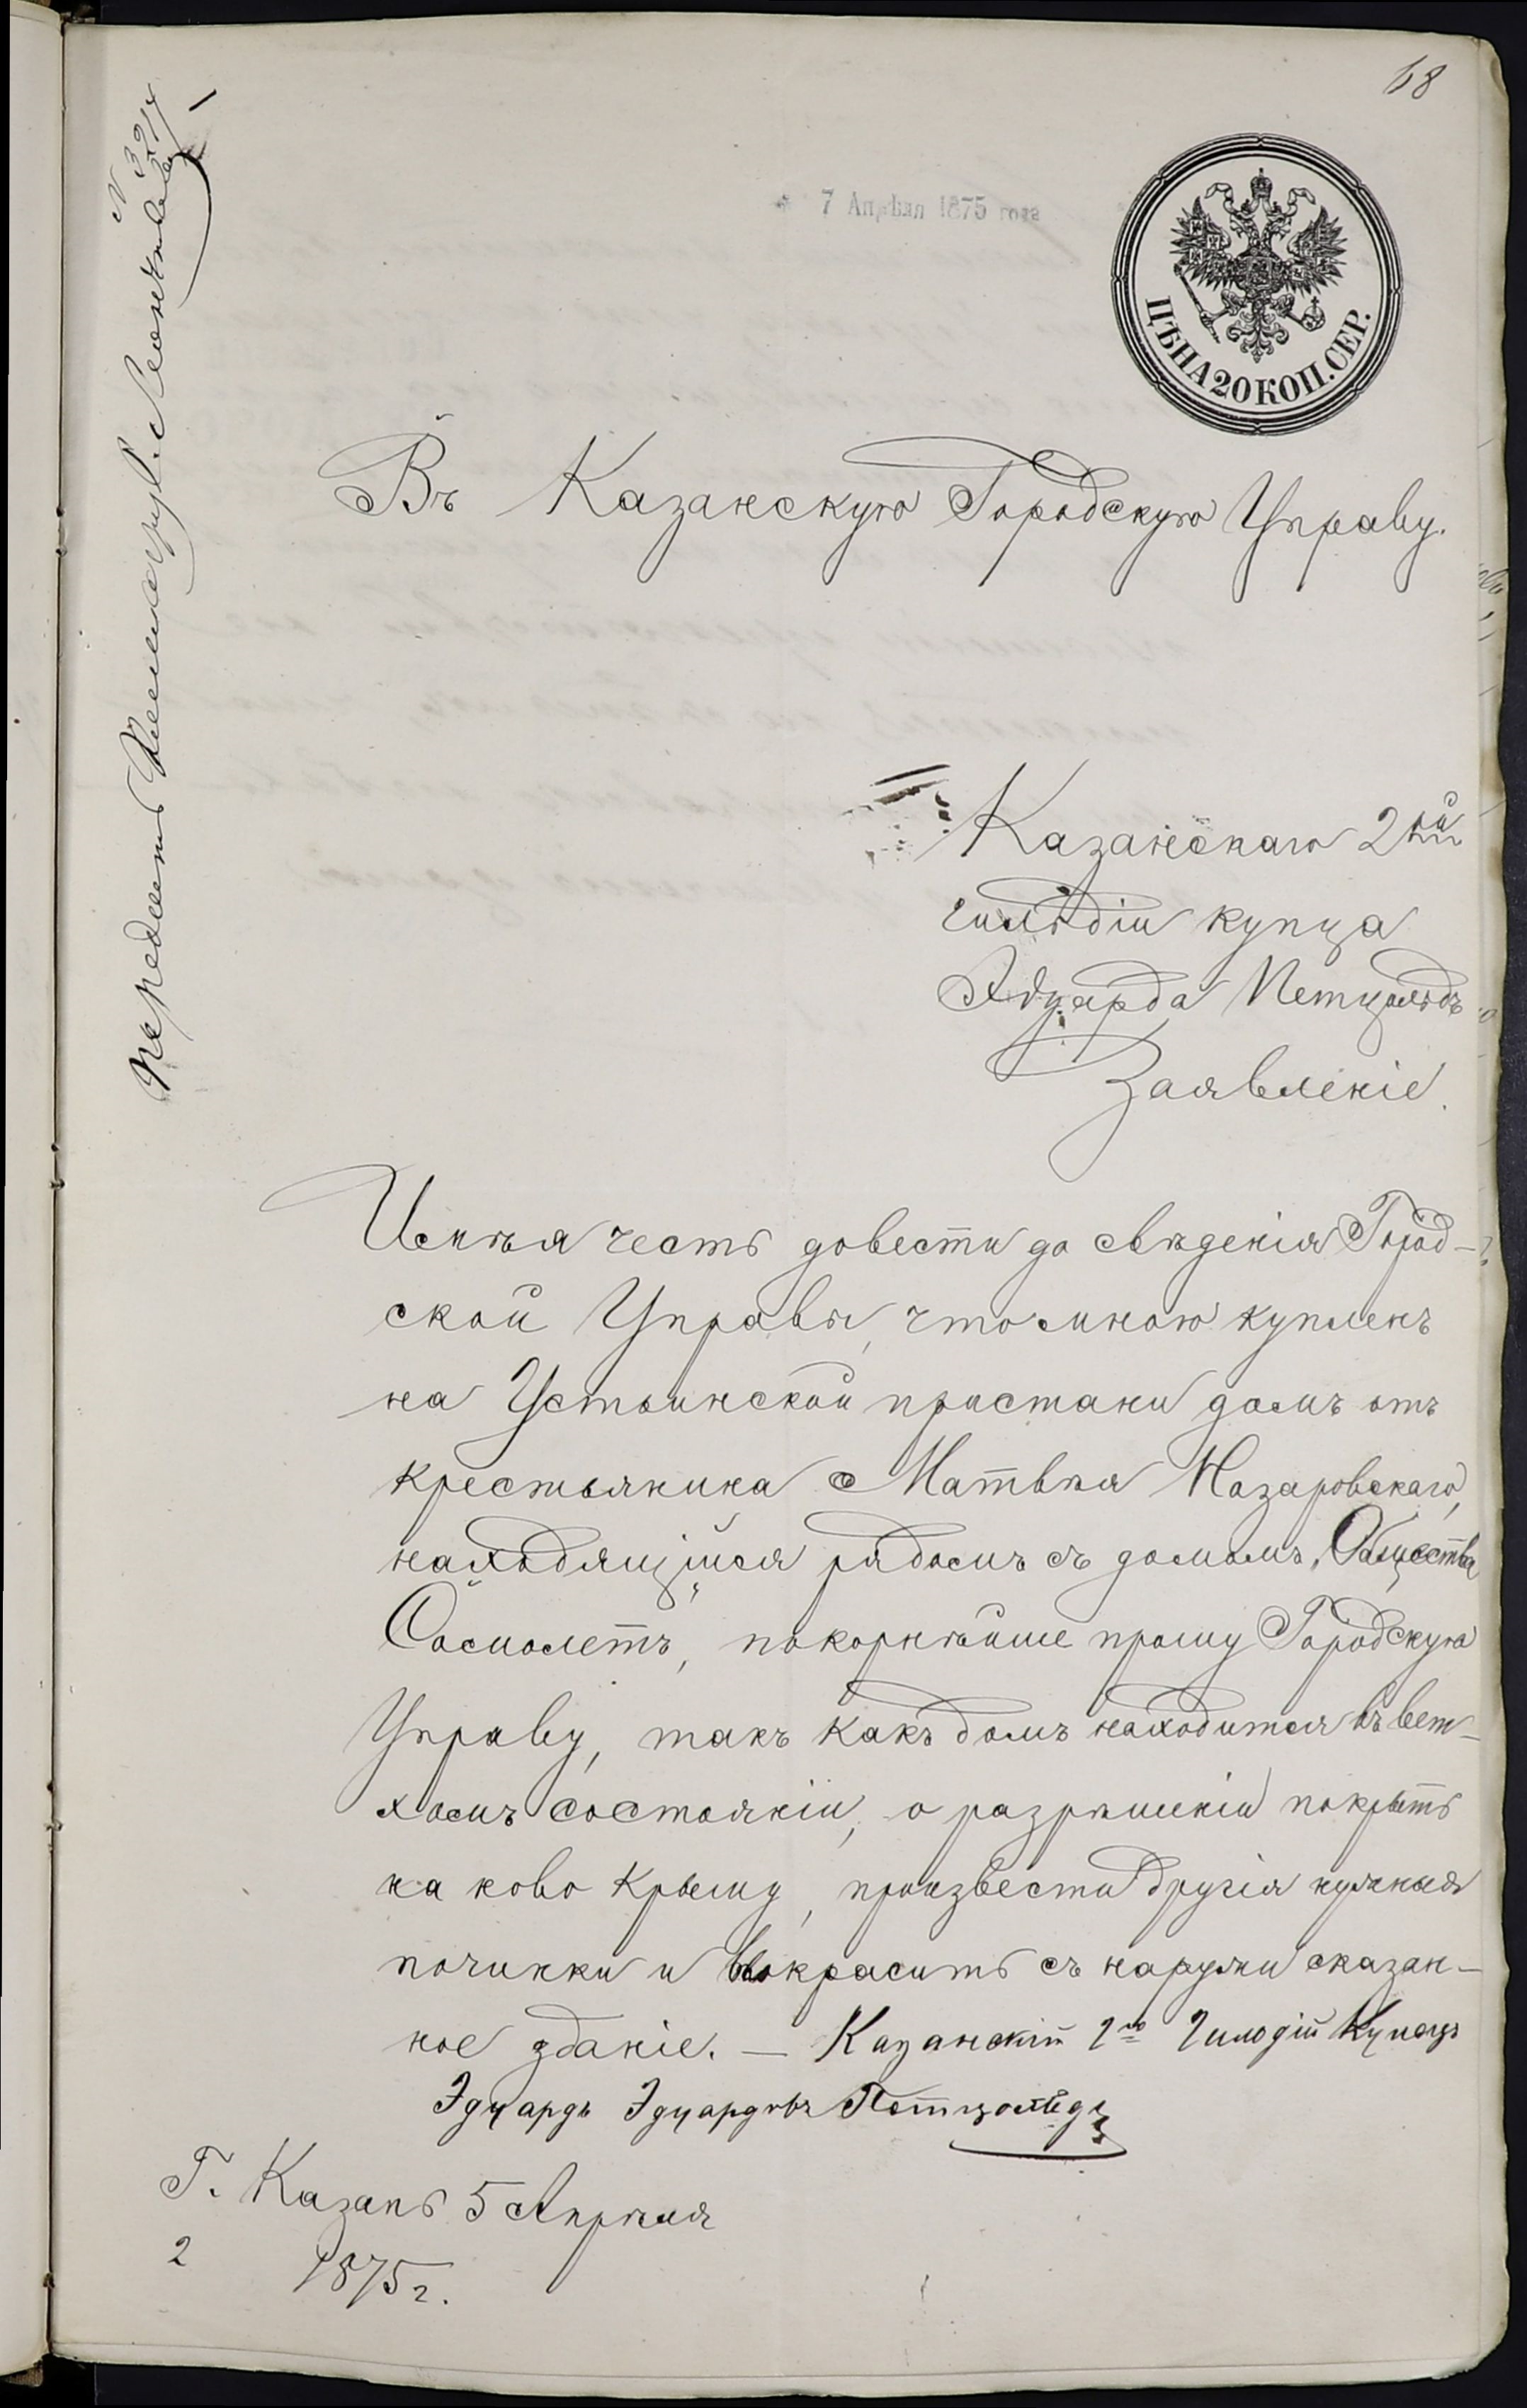 68
7 Апрѣля 1875 года
ЦѢНА 20 КОП. СЕР.
№ 3214
Передать Члену
Въ Казанскую Городскую Управу.
Казанскаго 2ой
гильдіи купца
Эдуарда Петцольдъ
Заявленіе.
Имѣя честь довести до свѣденія Город-
ской Управы, что мною купленъ
на Устьинской пристани домъ отъ
крестьянина Матвѣя Назаровскаго,
находящійся рядомъ съ домомъ Общества
„Самолетъ", покорнѣйше прошу Городскую
Управу, такъ какъ домъ находится въ вет-
хомъ состояніи, о разрѣшеніи покрыть
на ново крышу, произвести другія нужныя
починки и выкрасить съ наружи сказан-
ное зданіе. — Казанскій 2ой Гильдіи Купецъ
Эдуардъ Эдуардовъ Петцольдъ
Г. Казань 5 Апрѣля
2 1875 г.